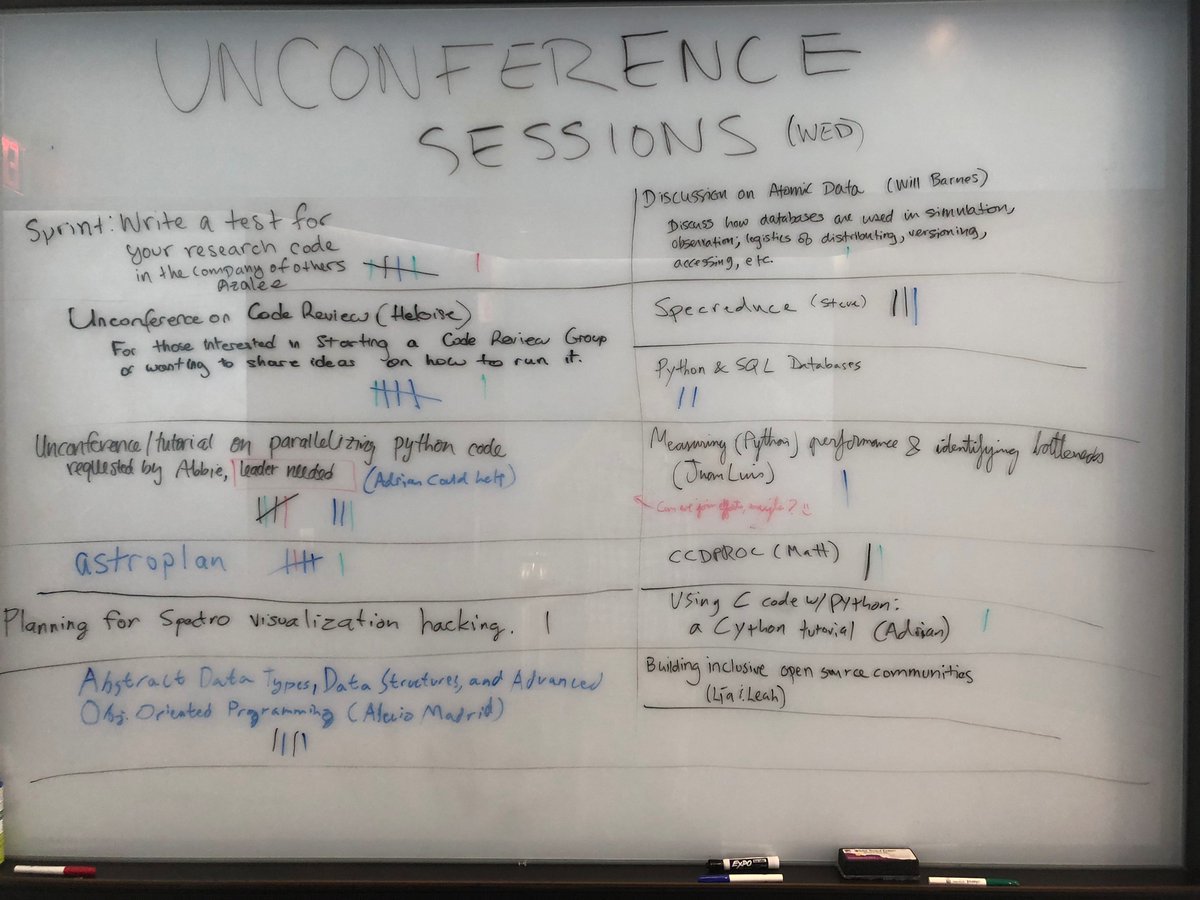 UNCONFERENCE
SESSIONS (WED)
Sprint: Write a test for
your research code
in the company of others
Azalee
Unconference on Code Review (Heloise)
For those interested in starting a Code Review Group
or wanting to share ideas on how to run it.
Unconference/tutorial on parallelizing python code
requested by Abbie, leader needed (Adrian could help)
astroplan
Planning for Spectro visualization hacking.
Abstract Data Types, Data Structures, and Advanced
Obj. Oriented Programming (Alexio Madrid)
Discussion on Atomic Data (Will Barnes)
Discuss how databases are used in simulation,
observation; logistics of distributing, versioning,
accessing, etc.
Specreduce (Steve)
Python & SQL Databases
Measuring (Python) performance & identifying bottlenecks
(Juan Luis)
Can we join efforts, maybe? :)
CCDPROC (Matt)
Using C code w/ python:
a Cython tutorial (Adrian)
Building inclusive open source communities
(Lía i. Leah)
EXPO